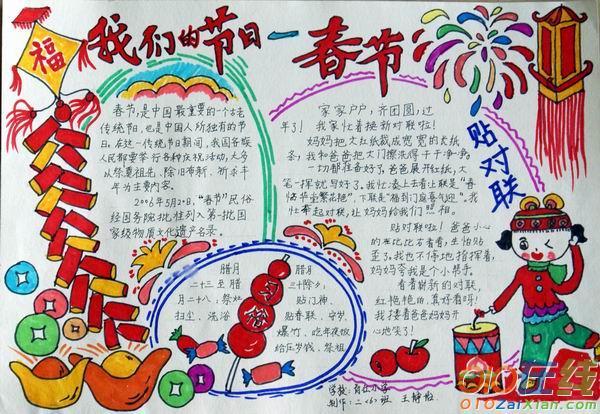 福
我们的节日—春节
春节,是中国最重要的一个古老
传统节日,也是中国人所独有的节
日。在这一传统节日期间,我国各族
人民都要举行各种庆祝活动,大多
以祭奠祖先、除旧布新、祈求丰
年为主要内容。
2006年5月20日,“春节”民俗
经国务院批准列入第一批国
家级物质文化遗产名录。
家家户户,齐团圆,过
年了!我家忙着换新对联啦!
妈妈把大红纸裁成宽宽的长纸
条,我和爸爸把大门擦洗得干干净净,
一切都准备好了。爸爸展开红纸,大
笔一挥就写好了。我忙凑上去看上联是“春
临华堂繁花艳”,下联是“福到门庭喜气迎”。我
忙举起对联,让妈妈给我们照相。
贴对联
贴对联啦!爸爸小心
的左比比右看看,生怕贴
歪了。我也不停地指挥着,
妈妈夸我是个小帮手。
看着崭新的对联,
红艳艳的,真好看呀!
我搂着爸爸妈妈开
心地笑了!
腊月
二十三至腊
月二十八:祭灶
扫尘、洗浴
习俗
腊月
三十除夕:
贴门神、
贴春联、守岁、
爆竹、吃年夜饭
给压岁钱、祭祖
学校:
制作:二〈6〉班 王静
010在线
010ZaiXian.com